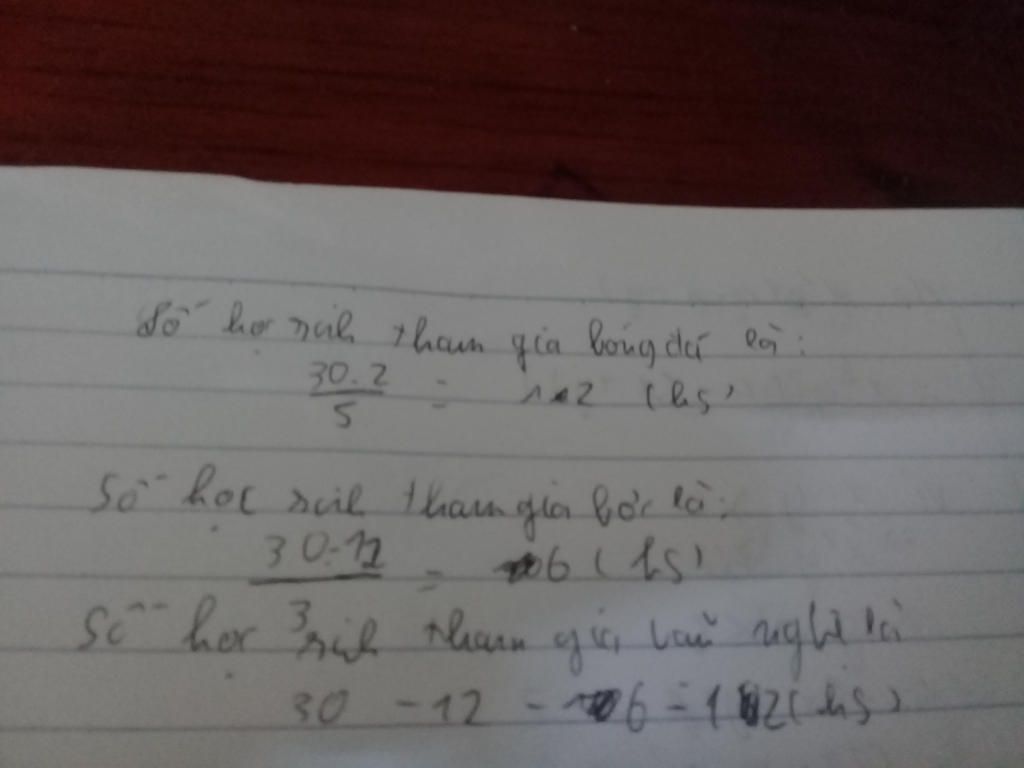 Số học sinh tham gia bóng đá là:
30.2 / 5 = 12 (hs)
Số học sinh tham gia bơi là:
30-12 / 3 = 6 (hs)
Số học sinh tham gia văn nghệ là
30 - 12 - 6 = 12 (hs)